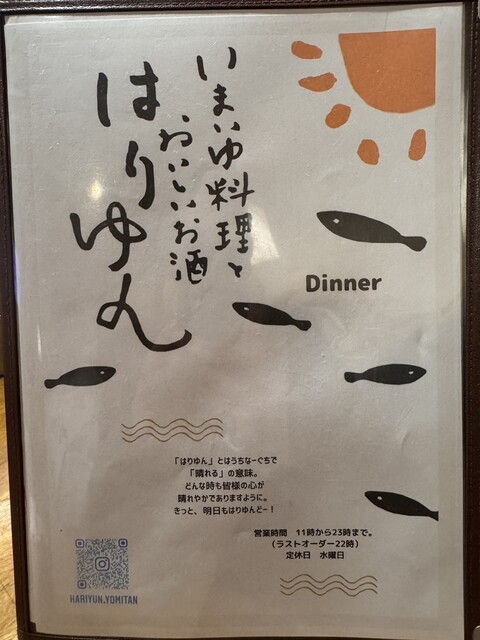 いまいゆ料理と
おいしいお酒
はりゆん
Dinner
「はりゆん」とはうちなーぐちで
「晴れる」の意味。
どんな時も皆様の心が
晴れやかでありますように。
きっと、明日もはりゆんどー！
営業時間　11時から23時まで。
（ラストオーダー22時）
定休日　水曜日
HARIYUN.YOMITAN